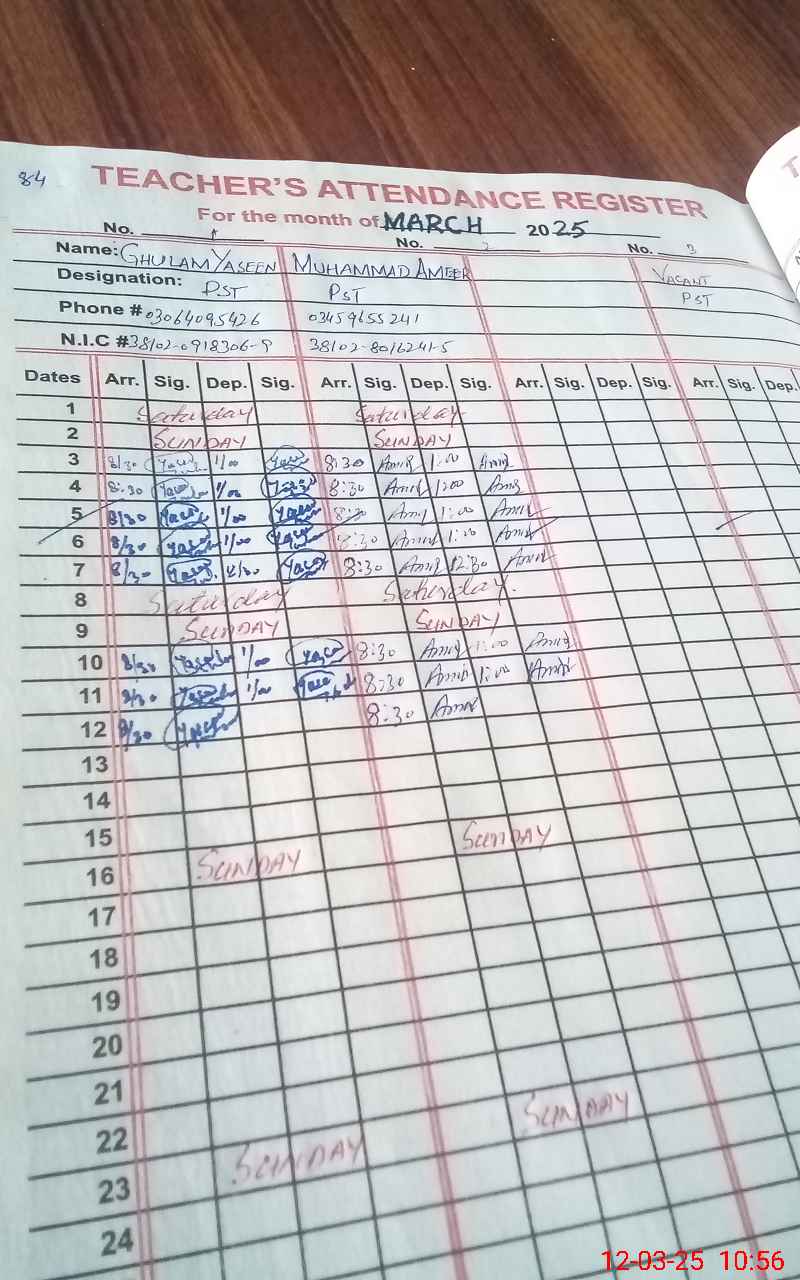 84
TEACHER'S ATTENDANCE REGISTER
For the month of MARCH 2025
No. 1 No. 2 No. 3
Name: GHULAM YASEEN MUHAMMAD AMEER VACANT
Designation: PST PST PST
Phone # 03064095426 03459655241
N.I.C # 38102-0918306-9 38102-8016241-5
Dates Arr. Sig. Dep. Sig. Arr. Sig. Dep. Sig. Arr. Sig. Dep. Sig. Arr. Sig. Dep.
1 Saturday Saturday
2 SUNDAY SUNDAY
3 8/30 1/00 8:30 Amir 1:00 Amir
4 8:30 1/00 8:30 Amir 1:00 Amir
5 8/30 1/00 8:30 Amir 1:00 Amir
6 8/30 1/00 8:30 Amir 1:00 Amir
7 8/30 12/30 8:30 Amir 12:30 Amir
8 Saturday Saturday.
9 SUNDAY SUNDAY
10 8/30 1/00 8:30 Amir 1:00 Amir
11 8/30 1/00 8:30 Amir 1:00 Amir
12 8/30 8:30 Amir
13
14
15
16 SUNDAY SUNDAY
17
18
19
20
21
22
23 SUNDAY SUNDAY
24
12-03-25 10:56